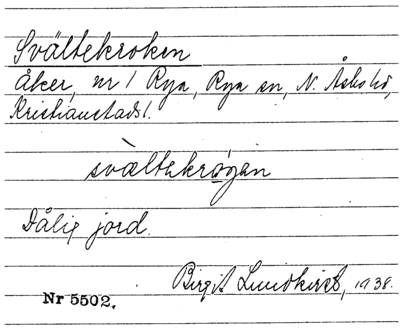 Svältekroken
Åker, nr 1 Rya, Rya sn, N. Åsbo hd,
Kristianstads l.
svältekrøgan
Dålig jord.
Birgit Lundkvist, 1938.
Nr 5502.